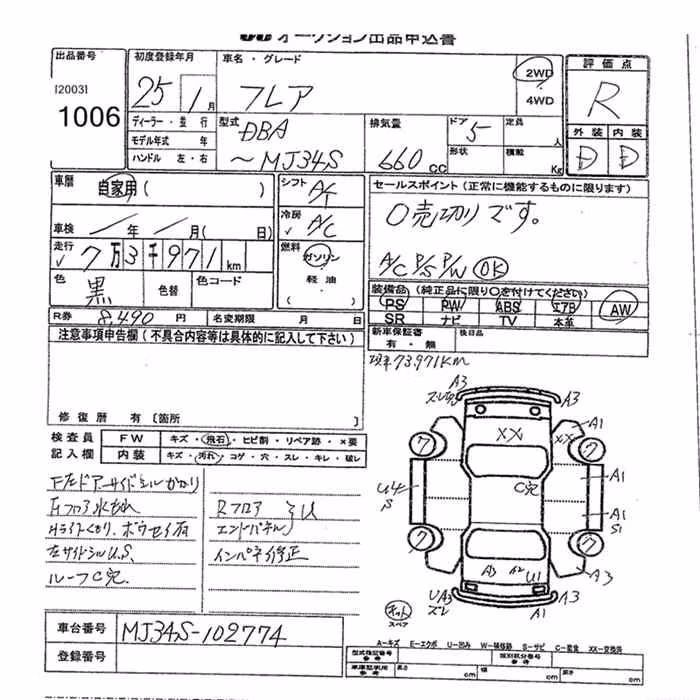 オークション出品申込書
出品番号
[2003]
1006
初度登録年月
25 1月
ディーラー・並行
モデル年式 年
ハンドル 左・右
車名・グレード
フレア
2WD
4WD
型式
DBA
〜MJ34S
排気量
660cc
ドア
5
形状
定員
人
積載
Kg
評価点
R
外装 内装
D D
車歴
自家用( )
車検 / 年 / 月( 日)
走行
√ 7万3千971km
色
黒
色替
色コード
シフト
A/T
冷房
√ A/C
燃料
ガソリン
軽油
( )
セールスポイント(正常に機能するものに限ります)
〇売切りです。
A/C P/S P/W OK
装備品(純正品に限り〇を付けてください)
PS PW ABS エアB AW
SR ナビ TV 本革
R券 8,490 円
名変期限 月 日
新車保証書
有・無
後日品
注意事項申告欄(不具合内容等は具体的に記入して下さい)
修復歴 有[箇所 ]
検査員
記入欄
FW キズ・飛石・ヒビ割・リペア跡・×要
内装 キズ・汚れ・コゲ・穴・スレ・キレ・破レ
左サイドシルU.S.
ルーフC穴.
Rフロア
エンドパネル
U
インパネ修正
現車73,971km
A3
A3
A1
XX
XX
7
7
C穴
A1
U4
S
A1
S1
7
7
A3
A2
U1
A3
UA3
スレ
A3
A1
キット
スペア
車台番号
MJ34S-102774
登録番号
A-キズ E-エクボ U-凹み W-補修跡 S-サビ C-腐食 XX-交換済
型式指定番号
参考
類別区分番号
参考
車庫証明用
参考
長さ cm
幅 cm
高さ cm